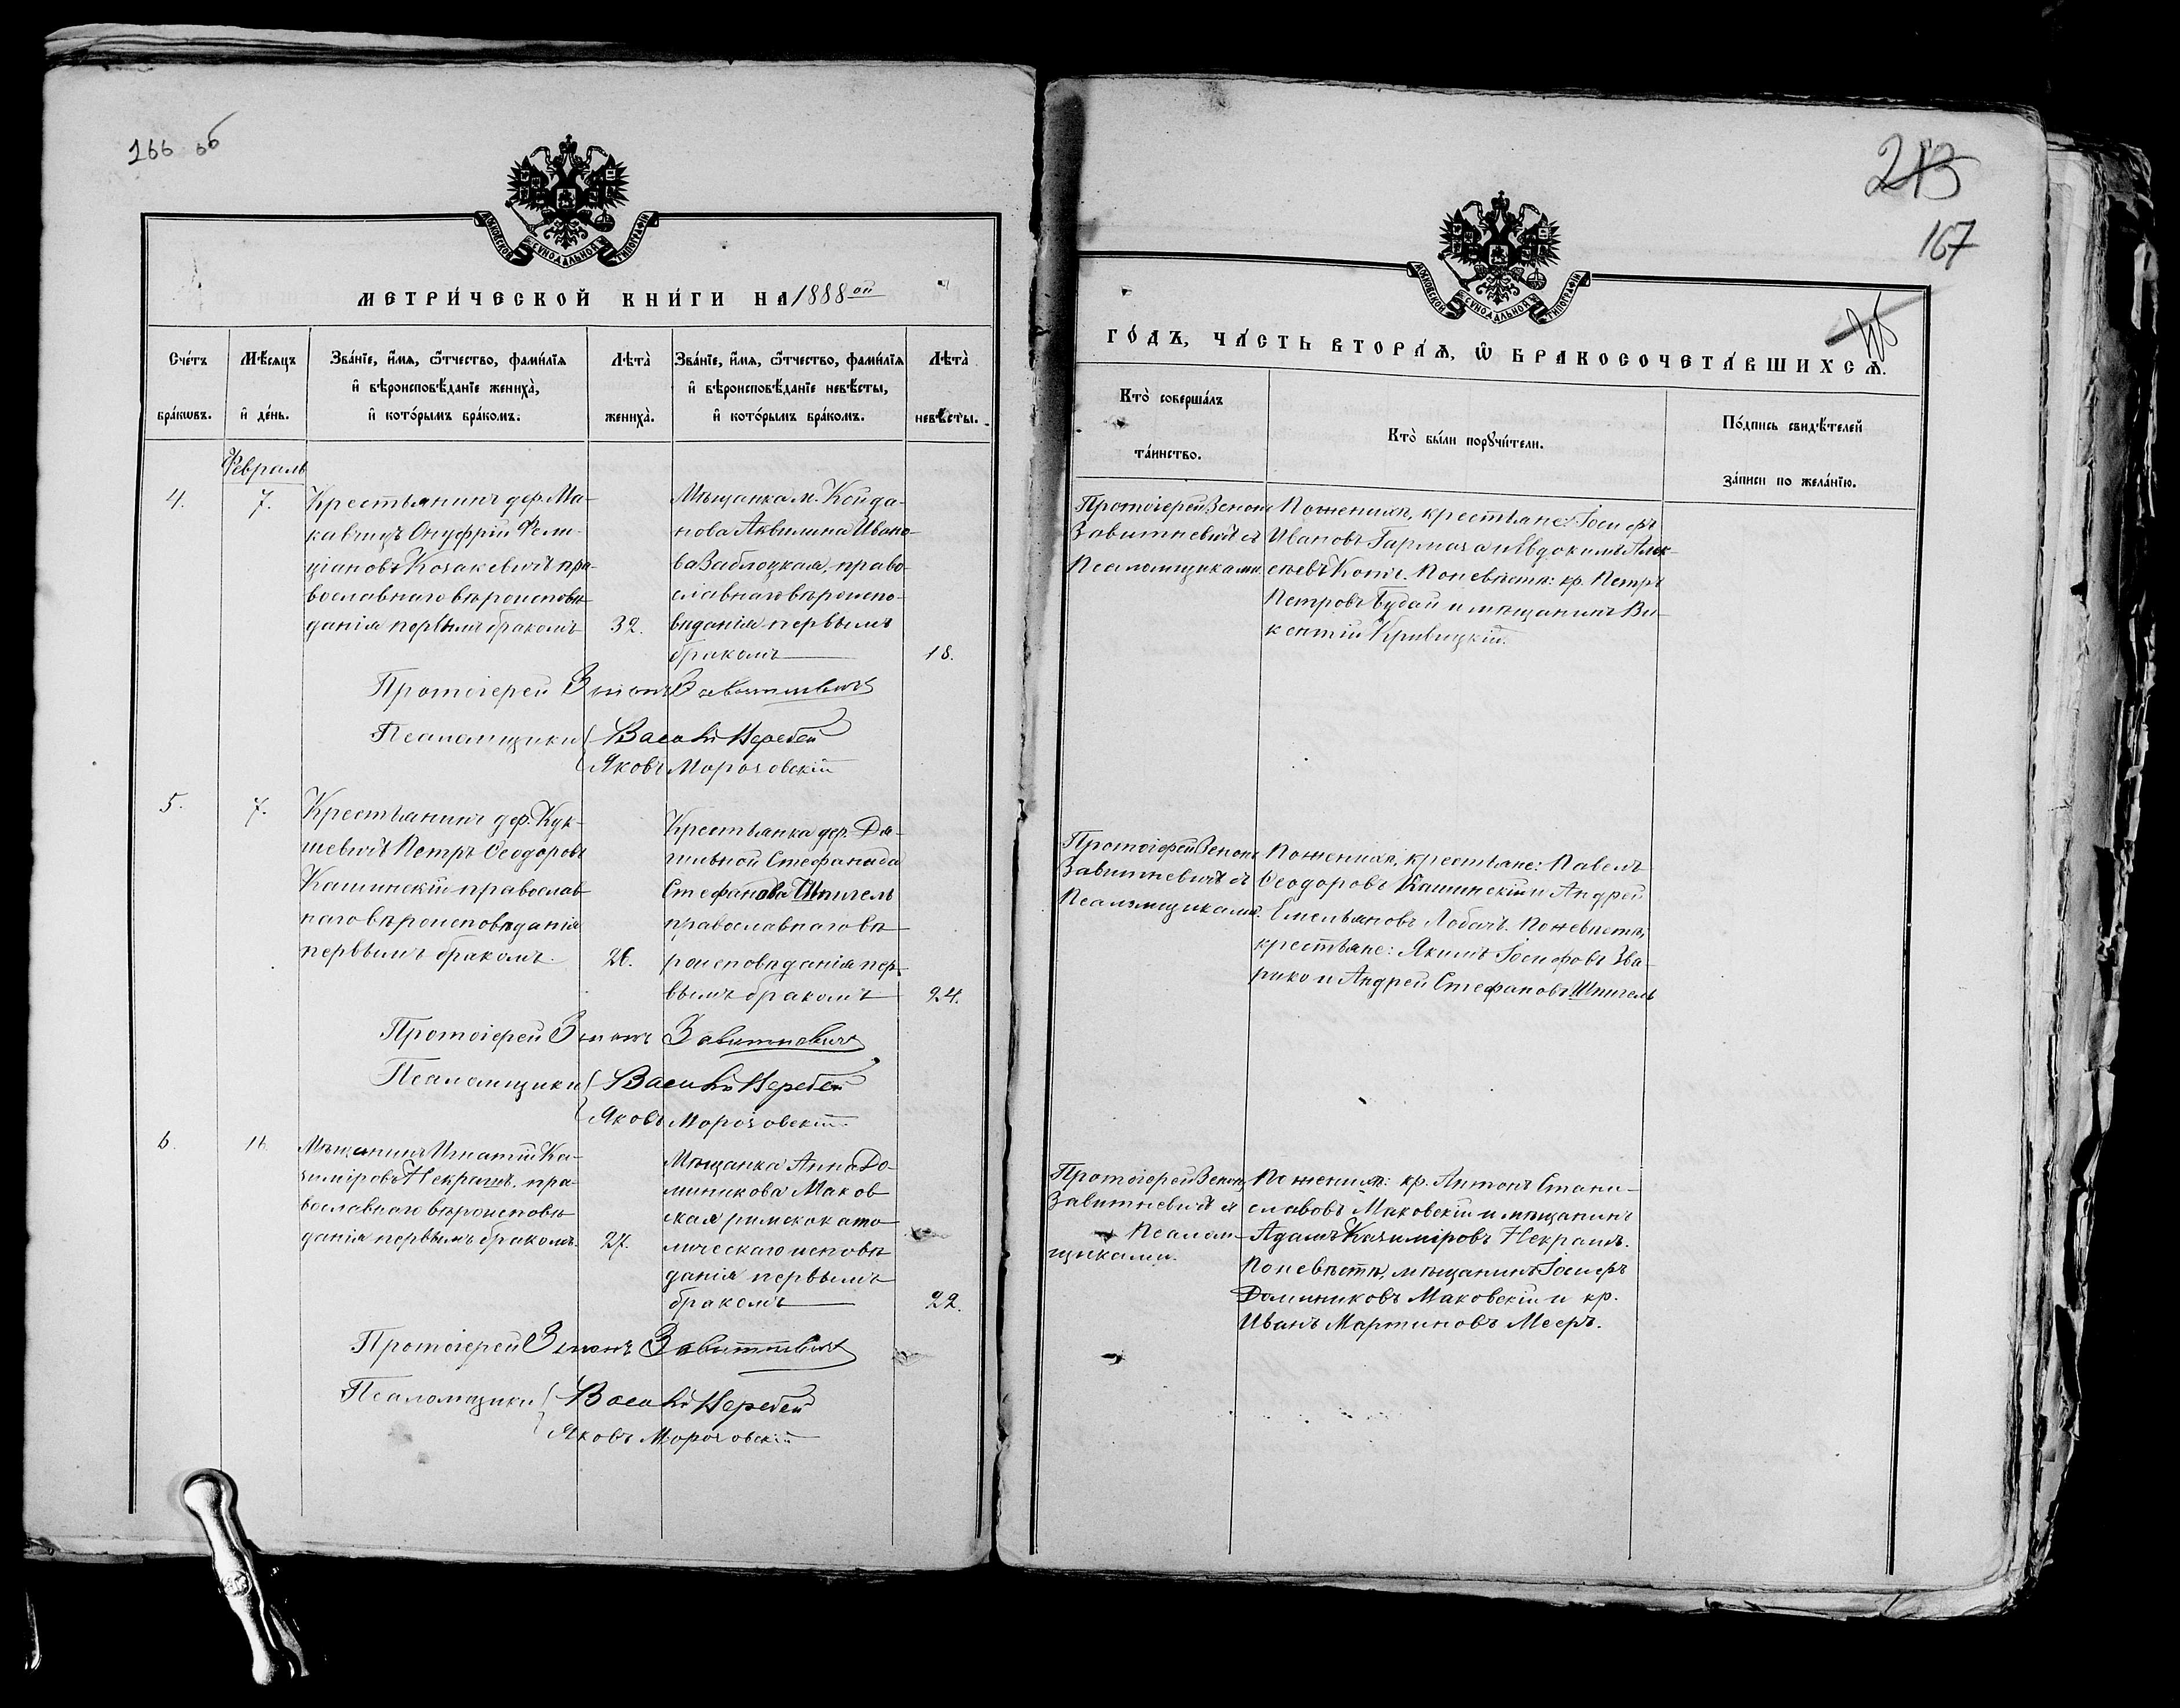 166 об
МОСКОВСКОЙ СУНОДАЛЬНОЙ ТИПОГРАФІИ
МЕТРИ́ЧЕСКОЙ КНИ́ГИ НА 1888 ой
Сче́тъ бра́кωвъ.
Мѣ́сяцъ и҆ де́нь.
Зва́нїе, и҆́мя, ѻ҆́тчество, фами́лїя и҆ вѣроисповѣ́данїе жениха̀, и҆ кото́рымъ бра́комъ.
Лѣ́та̀ жениха̀.
Зва́нїе, и҆́мя, ѻ҆́тчество, фами́лїя и҆ вѣроисповѣ́данїе невѣ́сты, и҆ кото́рымъ бра́комъ.
Лѣ́та̀ невѣ́сты.
Февраль
4.
7.
Крестьянинъ дер. Ма-
кавчицъ Онуфрій Фели-
ціановъ Козакевичъ пра-
вославнаго вѣроисповѣ-
данія первымъ бракомъ
32.
Мѣщанка м. Койда-
нова Аквилина Ивано-
ва Заблоцкая, право-
славнаго вѣроиспо-
вѣданія первымъ
бракомъ
18.
Протоіерей Зенонъ Завитневичъ
Псаломщики Василій Жеребей
Яковъ Морозовскій
5.
7.
Крестьянинъ дер. Кук-
шевичъ Петръ Ѳеодоровъ
Кашинскій православ-
наго вѣроисповѣданія
первымъ бракомъ.
26.
Крестьянка дер. Дя-
гильной Стефанида
Стефанова Шпигель
православнаго вѣ-
роисповѣданія пер-
вымъ бракомъ
24.
Протоіерей Зенонъ Завитневичъ
Псаломщики Василій Жеребей
Яковъ Морозовскій
6.
16.
Мѣщанинъ Игнатій Ка-
зиміровъ Некрашъ. пра-
вославнаго вѣроисповѣ-
данія первымъ бракомъ.
27.
Мѣщанка Анна До-
миникова Маков-
ская римскокато-
лическаго исповѣ-
данія первымъ
бракомъ
22.
Протоіерей Зенонъ Завитневичъ
Псаломщики Василій Жеребей
Яковъ Морозовскій
213
167
МОСКОВСКОЙ СУНОДАЛЬНОЙ ТИПОГРАФІИ
ГО́ДЪ, ЧА́СТЬ ВТОРА́Ѧ, Ѡ҆ БРАКОСОЧЕТА́ВШИХСѦ.
Кто̀ соверша́лъ та́инство.
Кто̀ бы́ли порꙋчи́тели.
По́дпись свидѣ́телей за́писи по жела́нїю.
Протоіерей Зенонъ
Завитневичъ съ
Псаломщиками.
По женихѣ, крестьяне: Іосифъ
Ивановъ Гармаза и Евдокимъ Алек-
сѣевъ Котъ. По невѣстѣ: кр. Петръ
Петровъ Будай и мѣщанинъ Ви-
кентій Кривицкій.
Протоіерей Зенонъ
Завитневичъ съ
Псаломщиками.
По женихѣ, крестьяне: Павелъ
Ѳеодоровъ Кашинскій и Андрей
Емельяновъ Лобачъ. По невѣстѣ,
крестьяне: Якимъ Іосифовъ Зва-
рико и Андрей Стефановъ Шпигель
Протоіерей Зенонъ
Завитневичъ съ
Псалом-
щиками.
По женихѣ: кр. Антонъ Стани-
славовъ Маковскій и мѣщанинъ
Адамъ Казиміровъ Некрашъ.
По невѣстѣ, мѣщанинъ Іосифъ
Доминиковъ Маковскій и кр.
Иванъ Мартиновъ Мееръ.